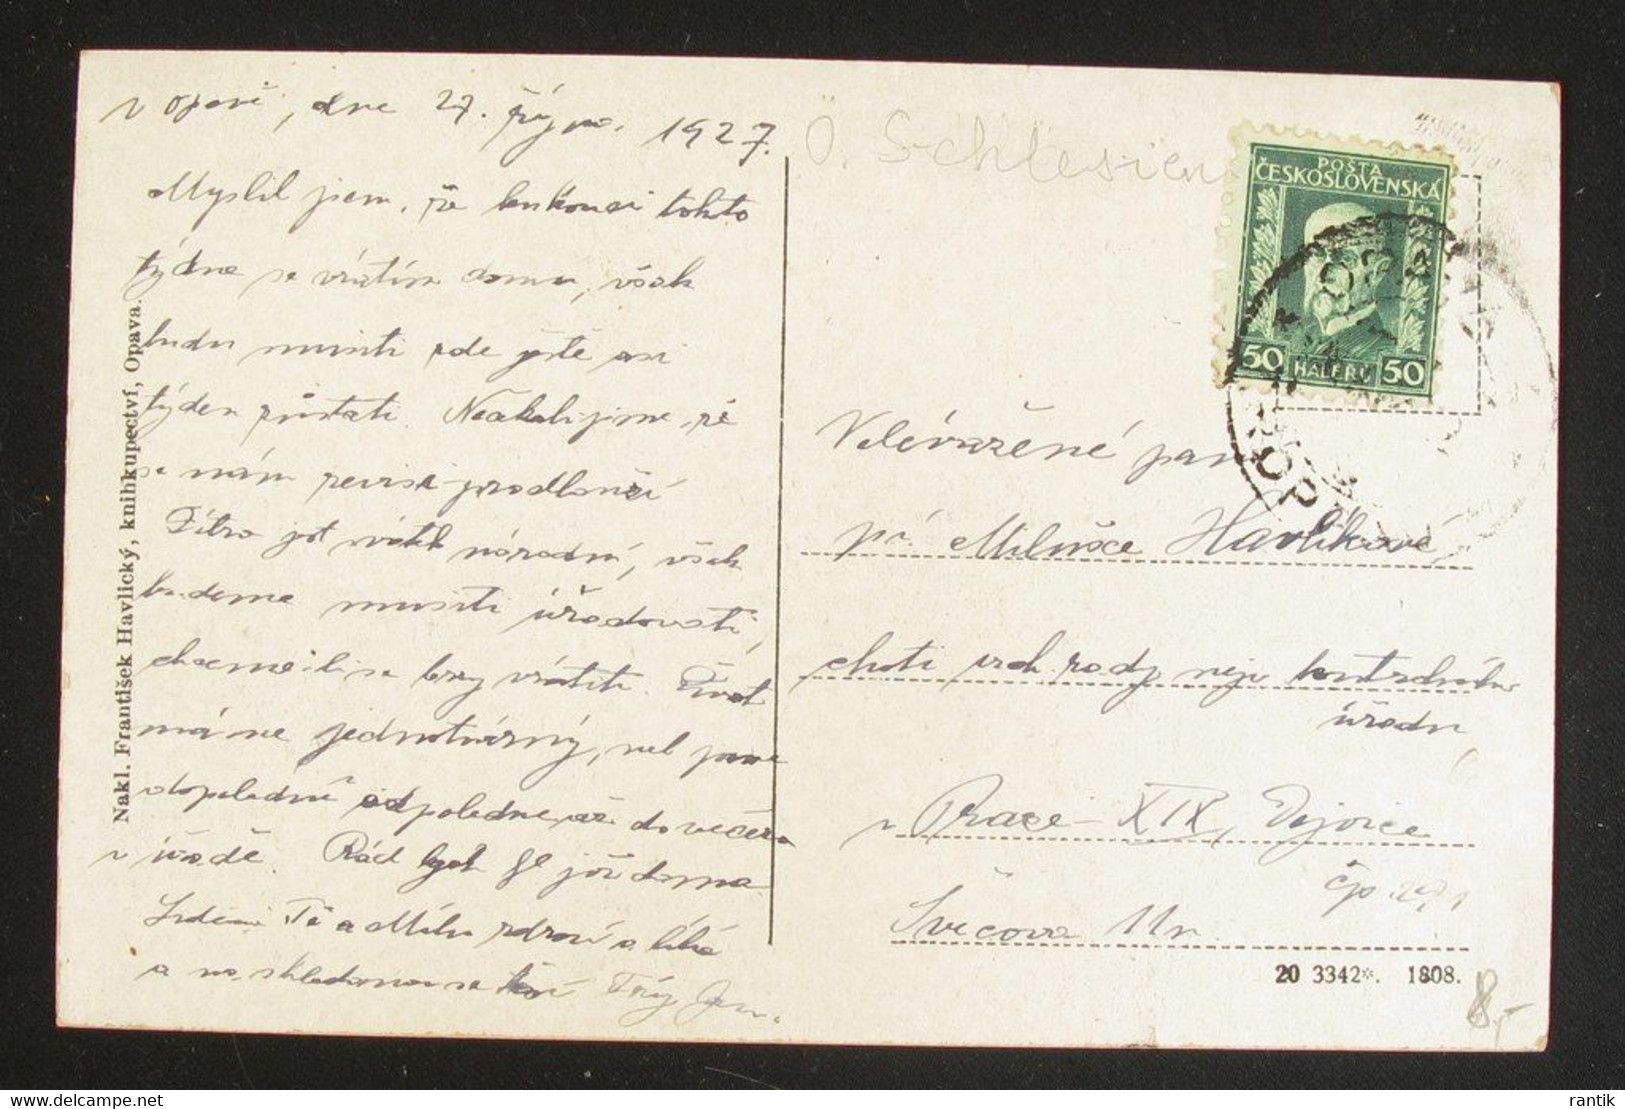 v Opavě, dne 27. října 1927.
Myslil jsem, že koncem tohoto
týdne se vrátím domů, však
budu musiti zde ještě asi
týden zůstati. Nečekali jsme, že
se nám revise prodlouží
Zítra jest svátek národní, však
budeme musiti úřadovati,
chceme-li se brzy vrátiti. Život
máme jednotvárný, neb jsme
dopoledne odpoledne až do večera
v úřadě. Rád bych již doma
Srdečně Tě a Milu zdraví a líbá
a na shledanou se těší Tvůj Jan.
Nakl. František Havlický, knihkupectví, Opava.
Ö. Schlesien
POŠTA
ČESKOSLOVENSKÁ
50 HALÉŘŮ 50
OPAVA
Velevážené paní
pí. Miluše Havlíkové,
choti vrch. rady nejv. kontrolního
úřadu
v Praze - XIX, Dejvice
čp. 271
Švecova 11n
20 3342*. 1808.
8,-
delcampe.net
rantik